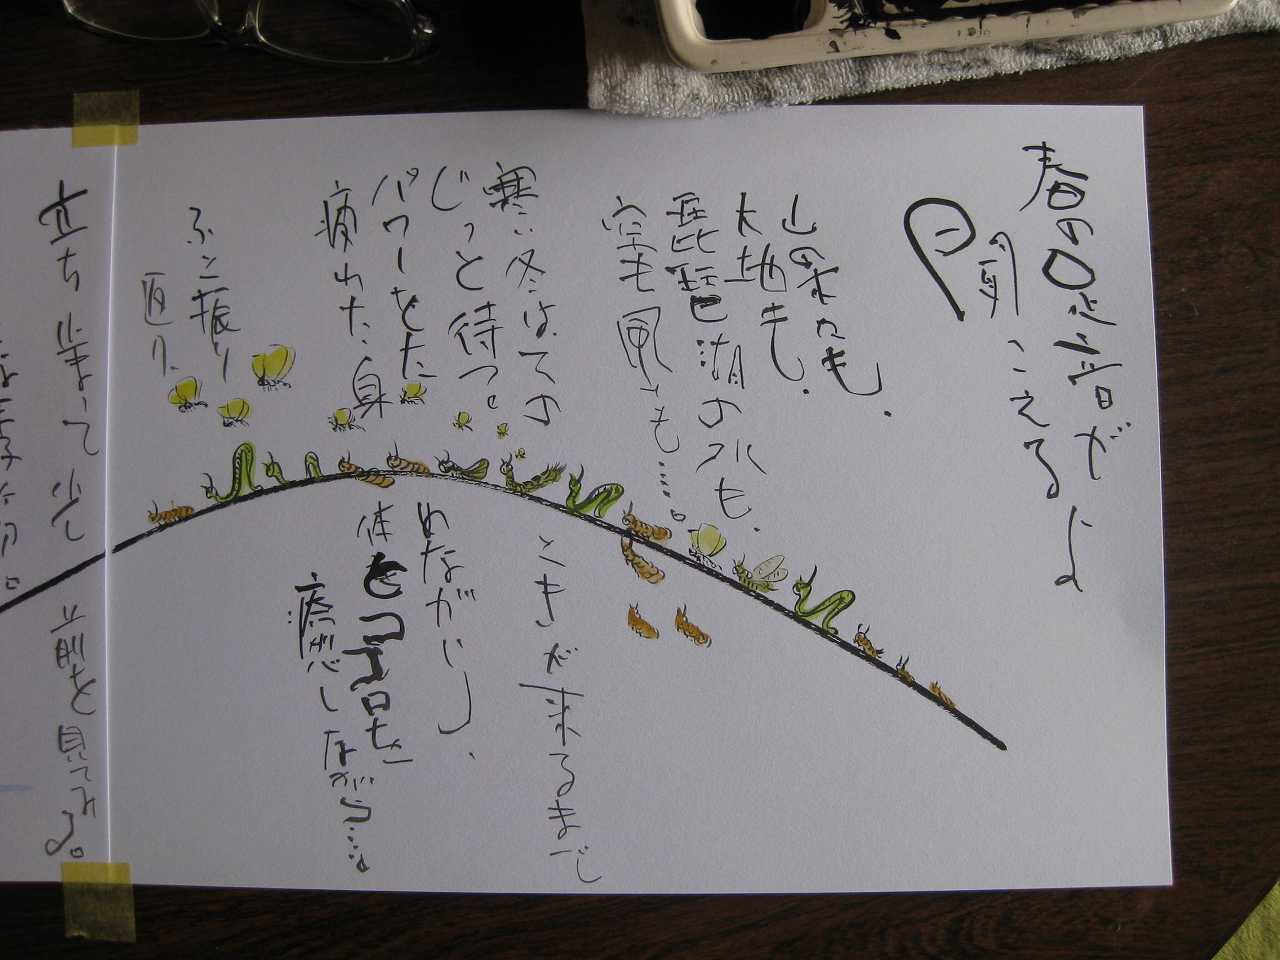 春の足音が
聞こえるよ
山の木たちも、
大地も、
琵琶湖の水も、
空も風も……。
寒い冬はての
ときが来るまで
じっと待つ。
パワーをた
めながら、
疲れた身
体をココロを
癒しながら…。
ふと振り
返り、
立ち止まって少し前を見てみる。